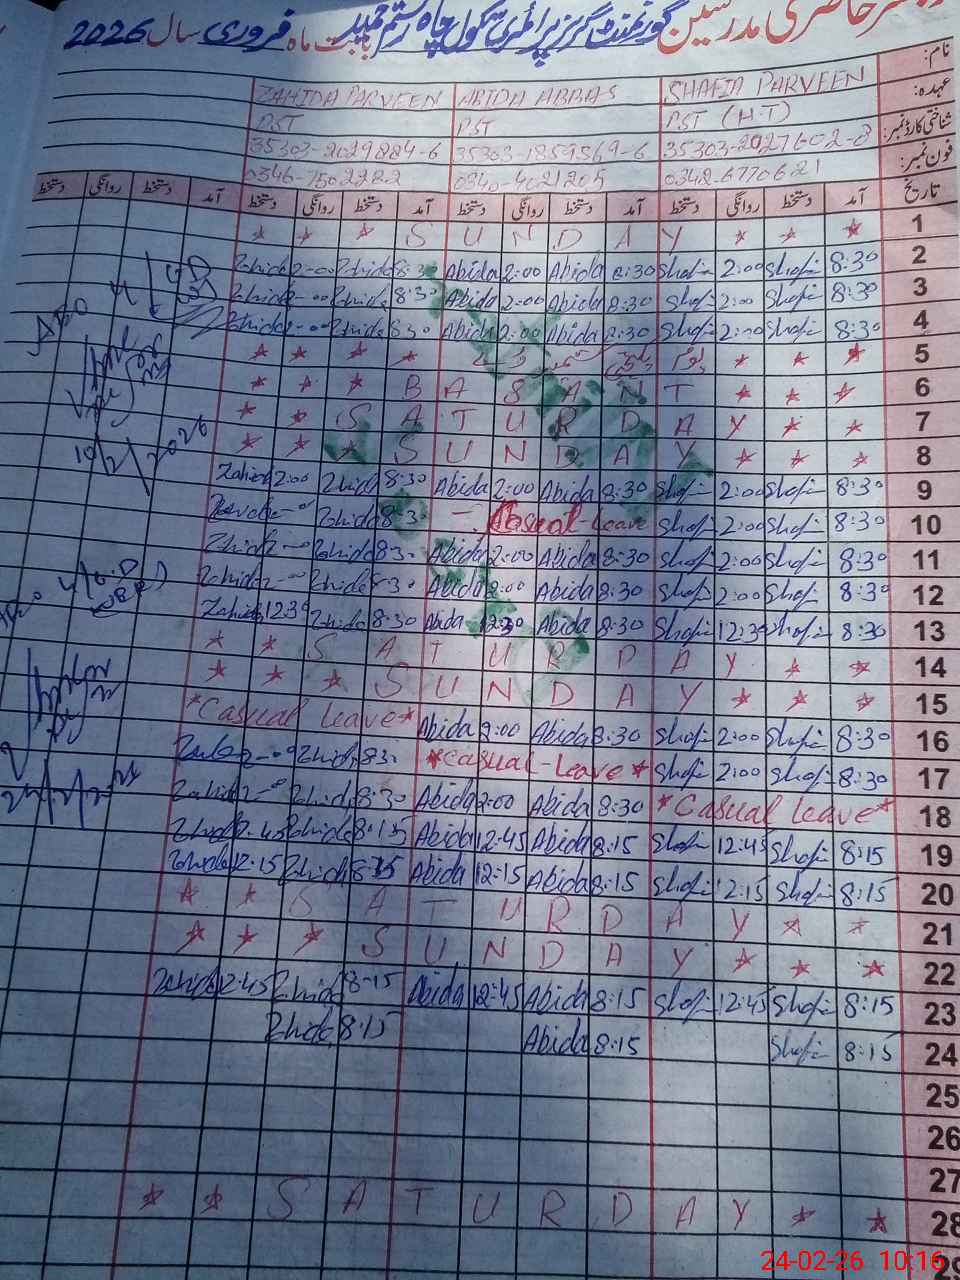 رجسٹر حاضری مدرسین گورنمنٹ گرلز پرائمری سکول چاہ رستم حمید بابت ماہ فروری سال 2026
نام: SHAFIA PARVEEN ABIDA ABBAS ZAHIDA PARVEEN
عہدہ: PST (H.T) PST PST
شناختی کارڈ نمبر: 35303-2027602-8 35303-1859569-6 35303-2029884-6
فون نمبر: 0342-6770621 0340-4021205 0346-7502282
تاریخ آمد دستخط روانگی دستخط آمد دستخط روانگی دستخط آمد دستخط روانگی دستخط آمد دستخط روانگی دستخط
1 * * * S U N D A Y * * *
2 8:30 Shafi 2:00 Shafi 8:30 Abida 2:00 Abida 8:30 Zahida 2:00 Zahida
3 8:30 Shafi 2:00 Shafi 8:30 Abida 2:00 Abida 8:30 Zahida 2:00 Zahida
4 8:30 Shafi 2:00 Shafi 8:30 Abida 2:00 Abida 8:30 Zahida 2:00 Zahida
5 * * * یوم یکجہتی کشمیر * * * *
6 * * * B A S A N T * * *
7 * * S A T U R D A Y * *
8 * * * S U N D A Y * * *
9 8:30 Shafi 2:00 Shafi 8:30 Abida 2:00 Abida 8:30 Zahida 2:00 Zahida
10 8:30 Shafi 2:00 Shafi Casual-leave 8:30 Zahida
11 8:30 Shafi 2:00 Shafi 8:30 Abida 2:00 Abida 8:30 Zahida 2:00 Zahida
12 8:30 Shafi 2:00 Shafi 8:30 Abida 2:00 Abida 8:30 Zahida 2:00 Zahida
13 8:30 Shafi 12:30 Shafi 8:30 Abida 12:30 Abida 8:30 Zahida 12:30 Zahida
14 * * S A T U R D A Y * *
15 * * * S U N D A Y * * *
16 8:30 Shafi 2:00 Shafi 8:30 Abida 2:00 Abida *Casual leave*
17 8:30 Shafi 2:00 Shafi *Casual-Leave* 8:30 Zahida 2:00
18 *Casual leave* 8:30 Abida 2:00 Abida 8:30 Zahida 2:00 Zahida
19 8:15 Shafi 12:45 Shafi 8:15 Abida 12:45 Abida 8:15 Zahida 12:45 Zahida
20 8:15 Shafi 12:15 Shafi 8:15 Abida 12:15 Abida 8:15 Zahida 12:15 Zahida
21 * * S A T U R D A Y * *
22 * * * S U N D A Y * * *
23 8:15 Shafi 12:45 Shafi 8:15 Abida 12:45 Abida 8:15 Zahida 12:45 Zahida
24 8:15 Shafi 8:15 Abida 8:15 Zahida
25
26
27
28 * * S A T U R D A Y * *
29
10/2/2026
24-02-26 10:16